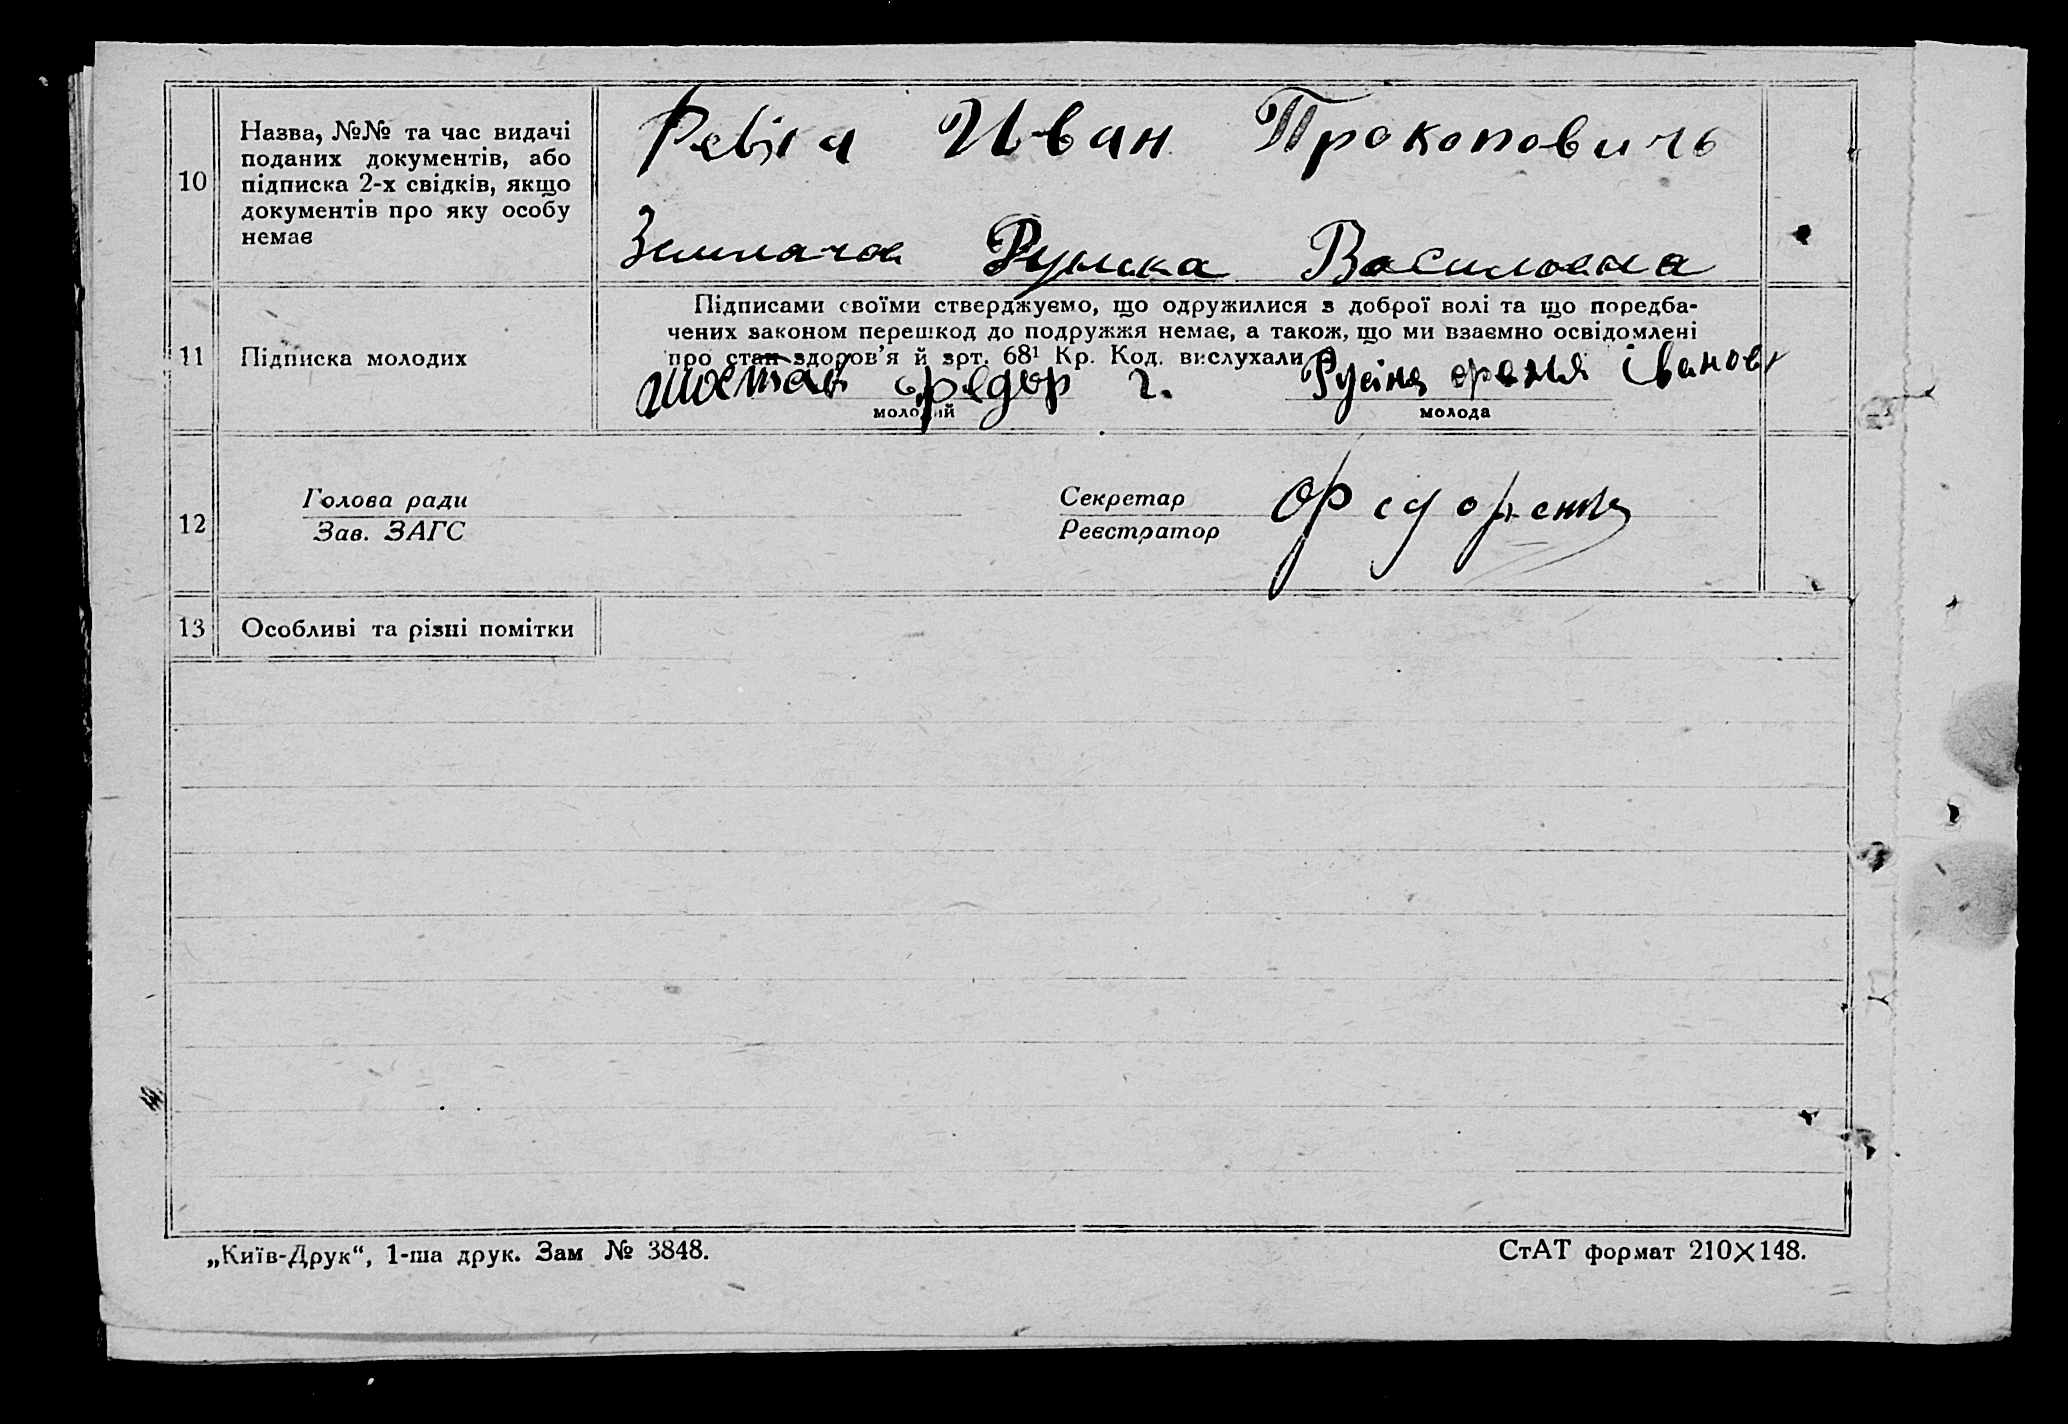 10
Назва, №№ та час видачі
поданих документів, або
підписка 2-х свідків, якщо
документів про яку особу
немає
Иван Прокоповичь
Василовна
11
Підписка молодих
Підписами своїми стверджуємо, що одружилися з доброї волі та що поредба-
чених законом перешкод до подружжя немає, а також, що ми взаємно освідомлені
про стан здоров’я й зрт. 68¹ Кр. Код. вислухали
Федор Г.
молодий
Івановн
молода
12
Голова ради
Зав. ЗАГС
Секретар
Реєстратор
13
Особливі та різні помітки
„Київ-Друк“, 1-ша друк. Зам № 3848.
СтАТ формат 210×148.